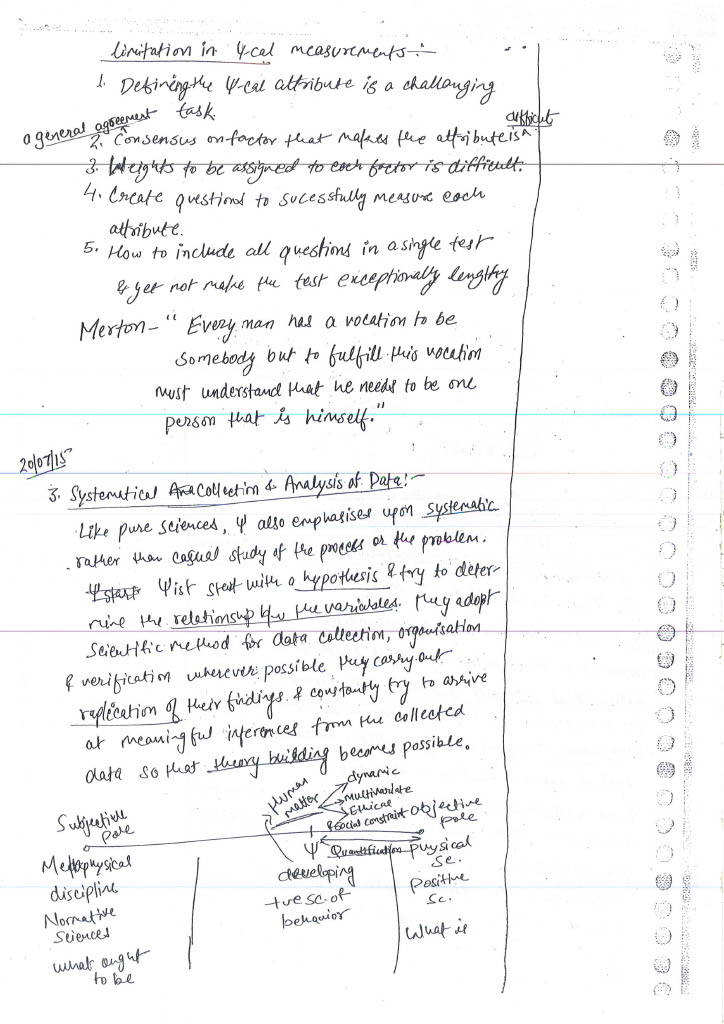 limitation in Ψ-cal measurements:-
1. Defining the Ψ-cal attribute is a challanging
task.
a general agreement
2. Consensus on factor that makes the attribute is difficult
3. Weights to be assigned to each factor is difficult.
4. Create questions to sucessfully measure each
attribute.
5. How to include all questions in a single test
& yet not make the test exceptionally lengthy
Merton - " Every man has a vocation to be
somebody but to fulfill this vocation
must understand that he needs to be one
person that is himself."
20/07/15
3. Systematical Collection & Analysis of Data:-
Like pure sciences, Ψ also emphasises upon systematic
rather than casual study of the process or the problem.
Ψ start Ψist start with a hypothesis & try to deter-
mine the relationship b/w the variables. They adopt
scientific method for data collection, organisation
& verification wherever possible they carry out
replication of their findings & constantly try to arrive
at meaningful inferences from the collected
data so that theory building becomes possible.
Human matter
dynamic
Multivariate
Ethical
& social constraint
Subjective pole
Objective pole
Ψ
Quantification
Metaphysical
discipline
Normative
Sciences
what ought
to be
developing
+ve sc. of
behavior
physical
sc.
Positive
sc.
What is